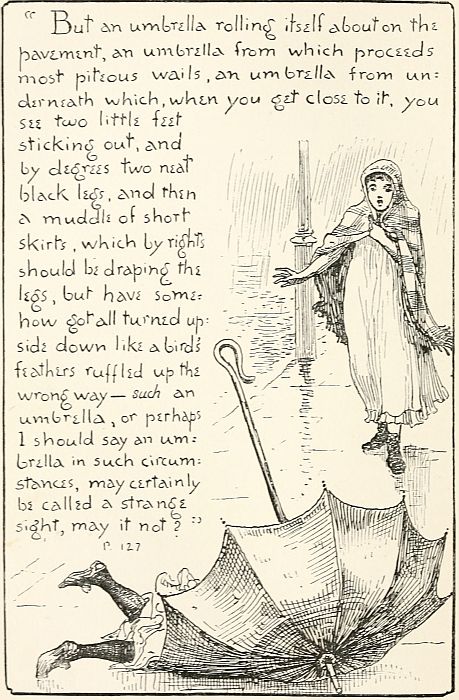 “ But an umbrella rolling itself about on the
pavement, an umbrella from which proceeds
most piteous wails, an umbrella from un:
derneath which, when you get close to it, you
see two little feet
sticking out, and
by degrees two neat
black legs, and then
a muddle of short
skirts, which by rights
should be draping the
legs, but have some:
how got all turned up:
side down like a bird's
feathers ruffled up the
wrong way — such an
umbrella, or perhaps
I should say an um:
brella in such circum:
stances, may certainly
be called a strange
sight, may it not? ”
P. 127